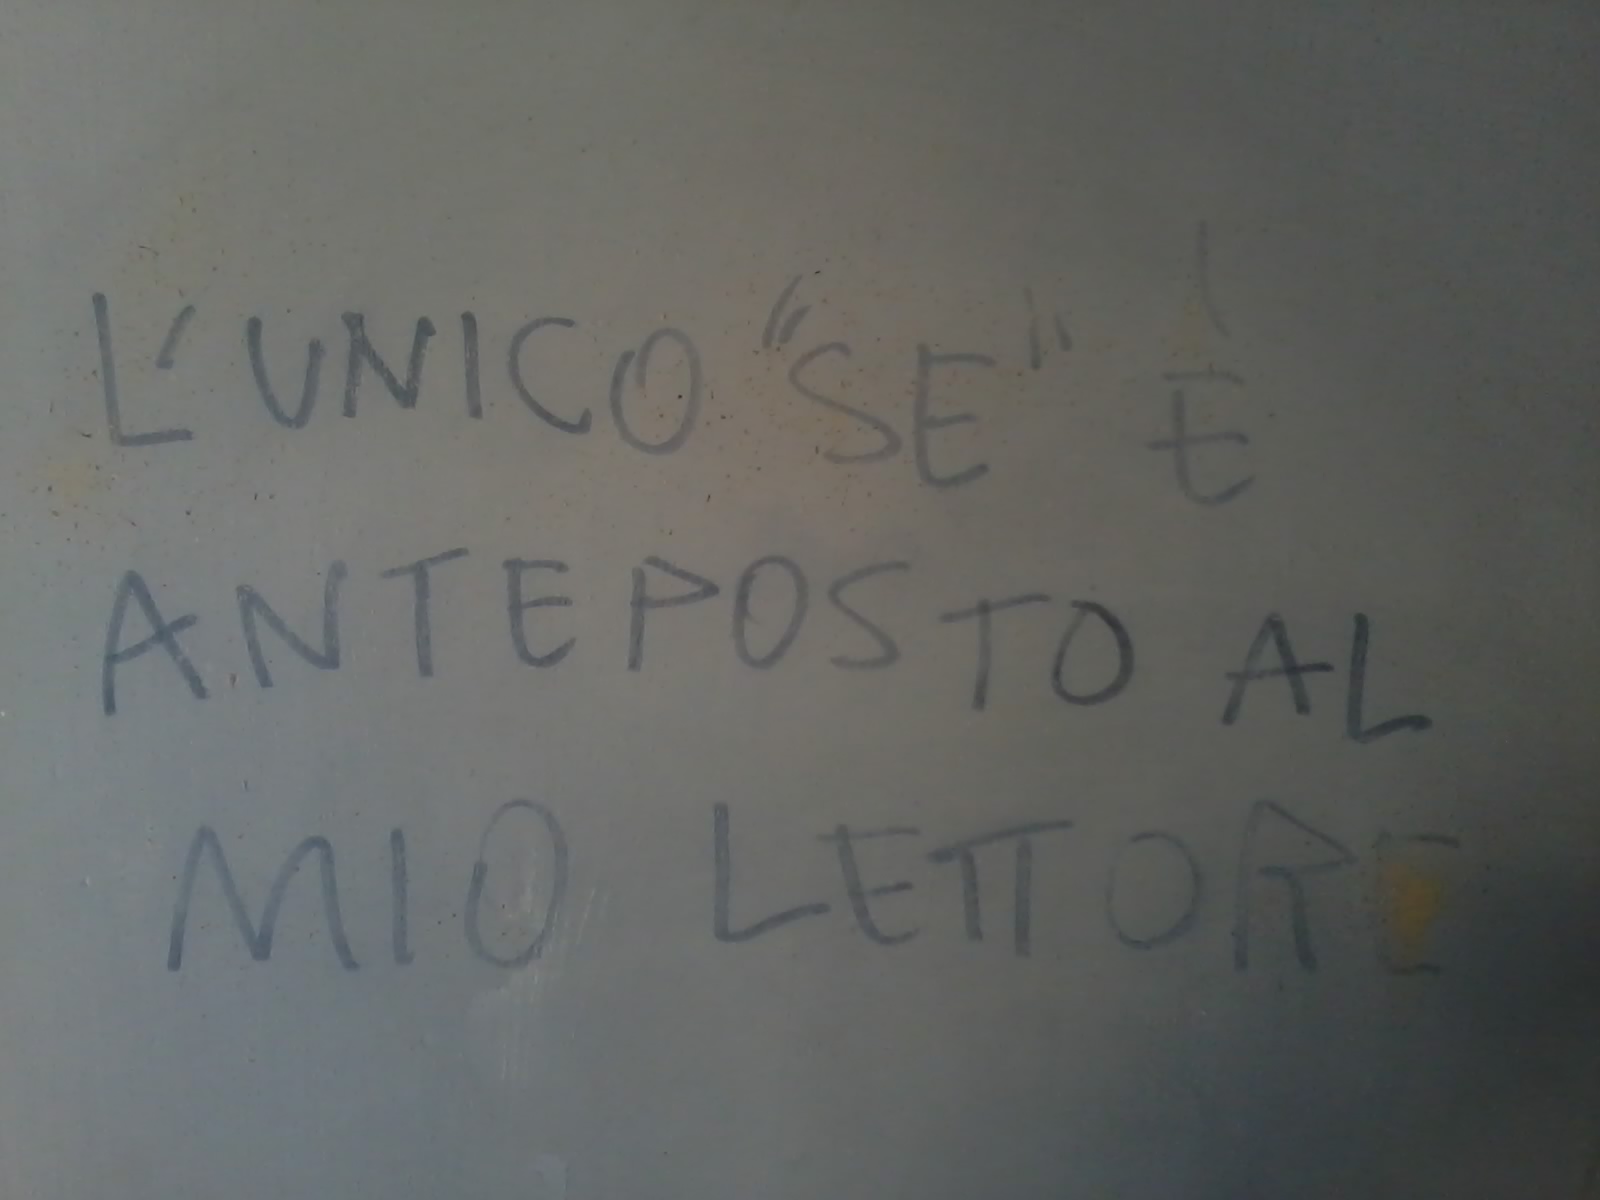 L'UNICO "SE" È
ANTEPOSTO AL
MIO LETTORE